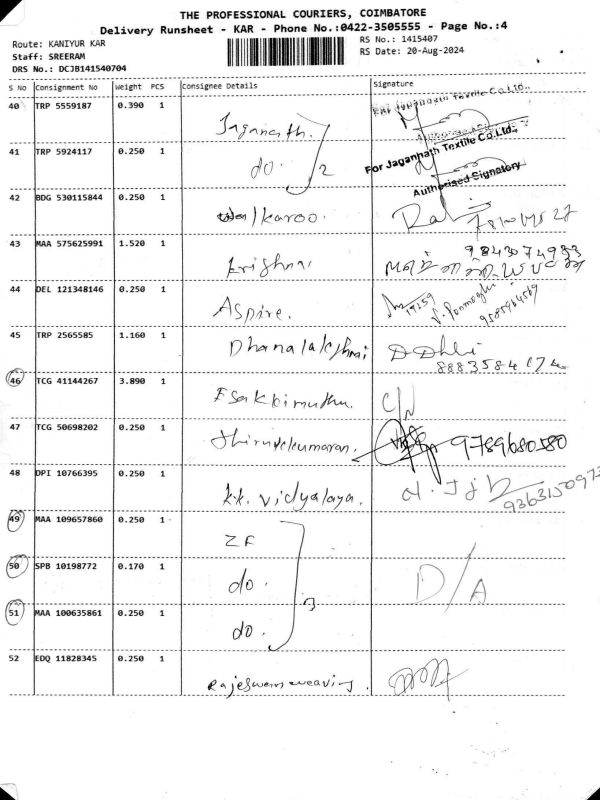 THE PROFESSIONAL COURIERS, COIMBATORE
Delivery Runsheet - KAR - Phone No.:0422-3505555 - Page No.:4
Route: KANIYUR KAR
RS No.: 1415407
Staff: SREERAM
RS Date: 20-Aug-2024
DRS No.: DCJB141540704
S No Consignment No Weight PCS Consignee Details Signature
40 TRP 5559187 0.390 1 Jaganath.
41 TRP 5924117 0.250 1 do. 2
For Jagannath Textile Co.Ltd.,
Authorised Signatory
42 BDG 530115844 0.250 1 Walkaroo.
43 MAA 575625991 1.520 1 krishna
9843074933
44 DEL 121348146 0.250 1 Aspire.
14259
45 TRP 2565585 1.160 1 Dhanalakshmi
46 TCG 41144267 3.890 1 Esakkimuthu. C/N
47 TCG 50698202 0.250 1 9789680580
48 DPI 10766395 0.250 1 kk. vidyalaya.
49 MAA 109657860 0.250 1 ZF
50 SPB 10198772 0.170 1 do. 3 D/A
51 MAA 100635861 0.250 1 do.
52 EDQ 11828345 0.250 1 Rajeswari weaving.